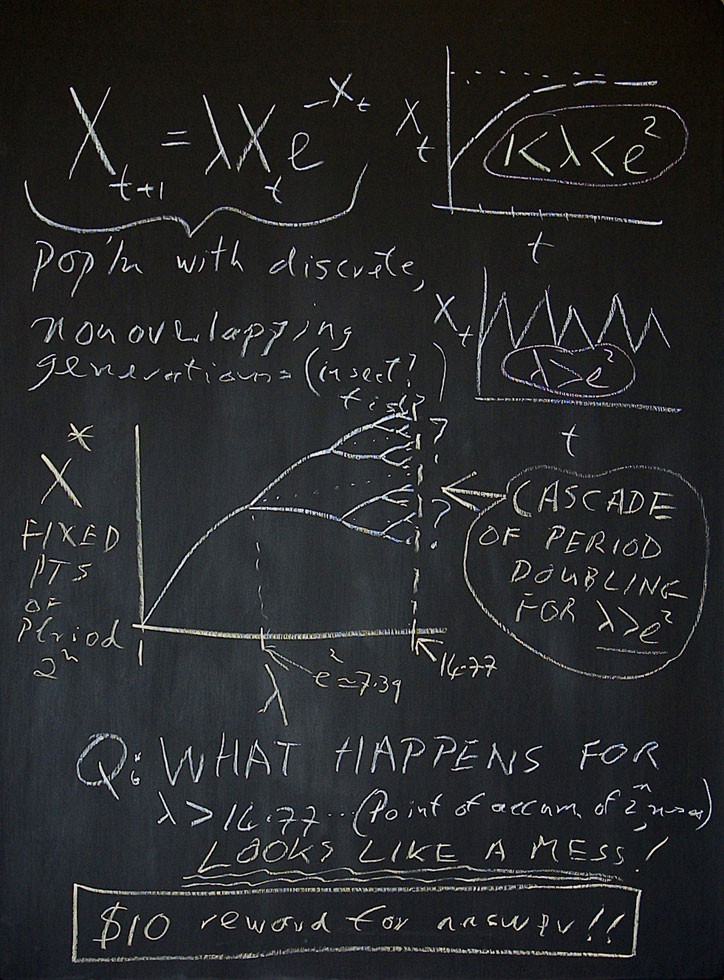 X_{t+1} = λX_t e^{-X_t}
X_t
1<λ<e²
t
Pop'ln with discrete,
nonoverlapping
generations (insect?
fish?)
X_t
λ>e²
t
X*
FIXED
PTS
OF
Period
2ⁿ
1
λ
e²≃7.39
14.77
?
?
CASCADE
OF PERIOD
DOUBLING
FOR λ>e²
Q: WHAT HAPPENS FOR
λ>14.77...(Point of accum. of 2ⁿ, n→∞)
LOOKS LIKE A MESS!
$10 reward for answer!!